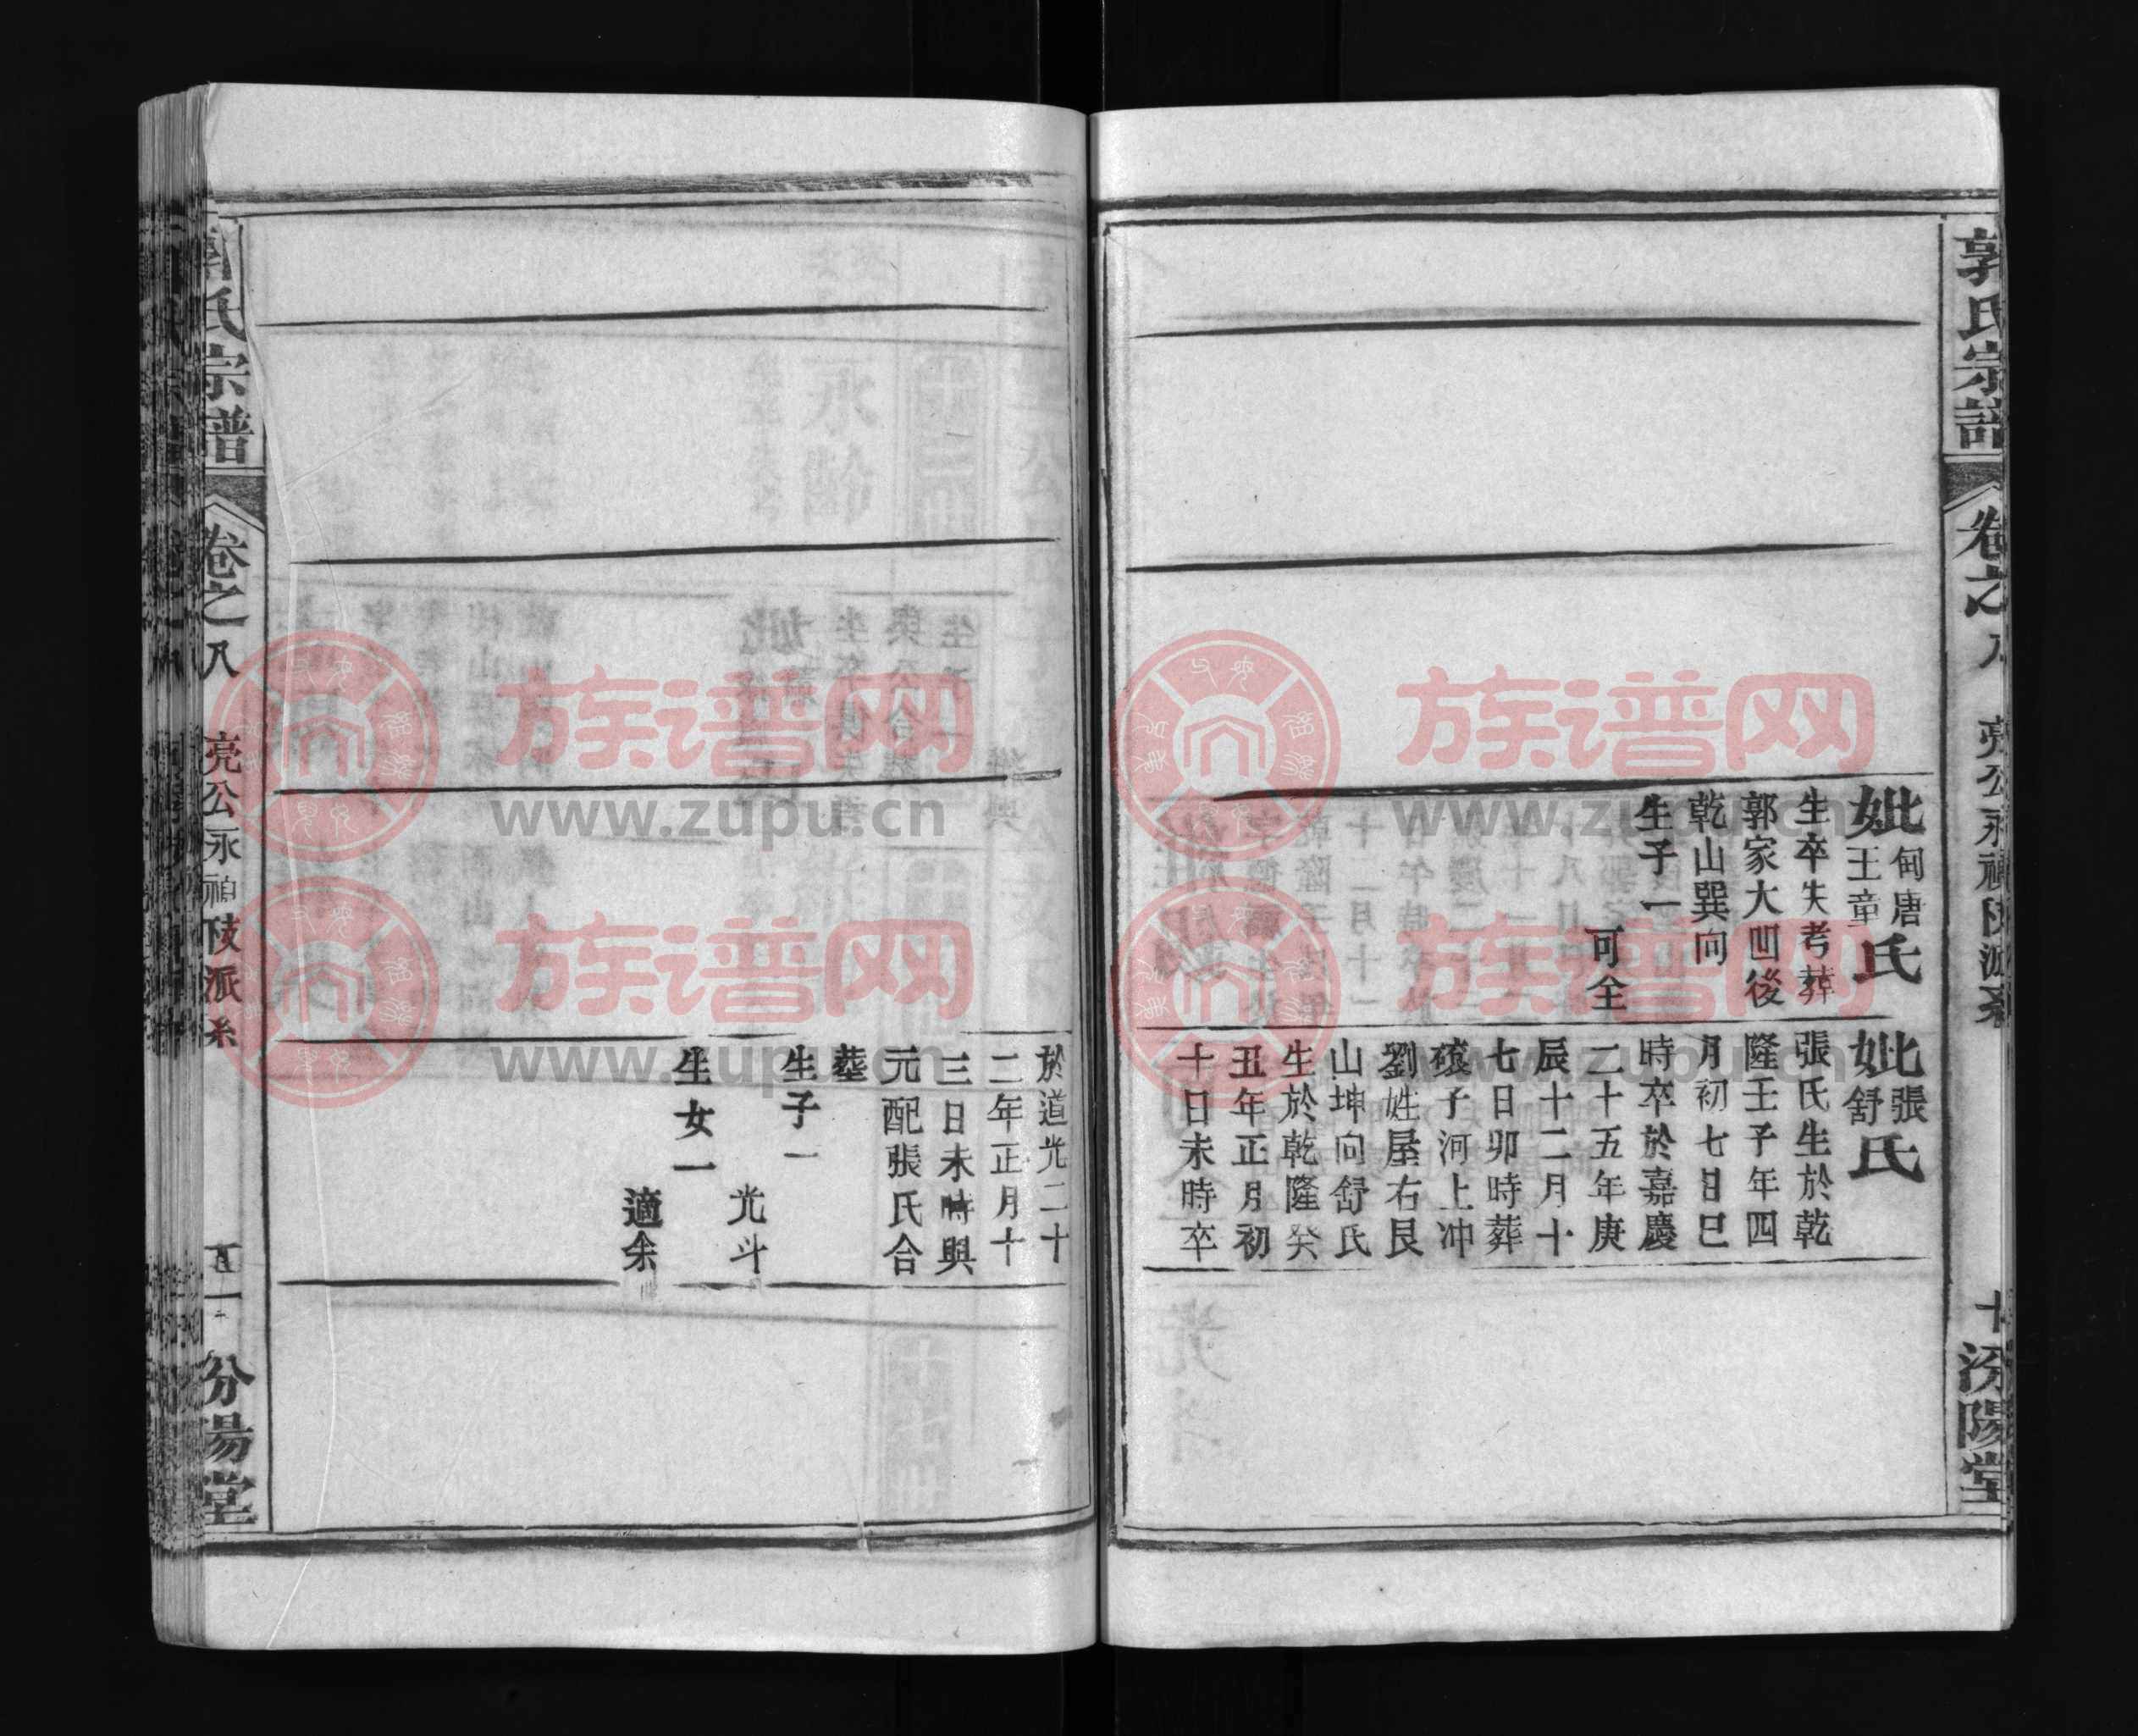 郭氏宗譜
卷之八
亮公永福枝派系
十
汾陽堂
妣
甸唐
王童
氏
生卒失考葬
郭家大凹後
乾山巽向
生子一
可全
妣
張
舒
氏
張氏生於乾
隆壬子年四
月初七日巳
時卒於嘉慶
二十五年庚
辰十二月十
七日卯時葬
子河上冲
劉姓屋右艮
山坤向舒氏
生於乾隆癸
丑年正月初
十日未時卒
於道光二十
二年正月十
三日未時與
元配張氏合
塟
生子一
光斗
生女一
適余
郭氏宗譜
卷之八
亮公永福枝派系
汾陽堂
族谱网
www.zupu.cn
族谱网
www.zupu.cn
族谱网
www.zupu.cn
族谱网
www.zupu.cn